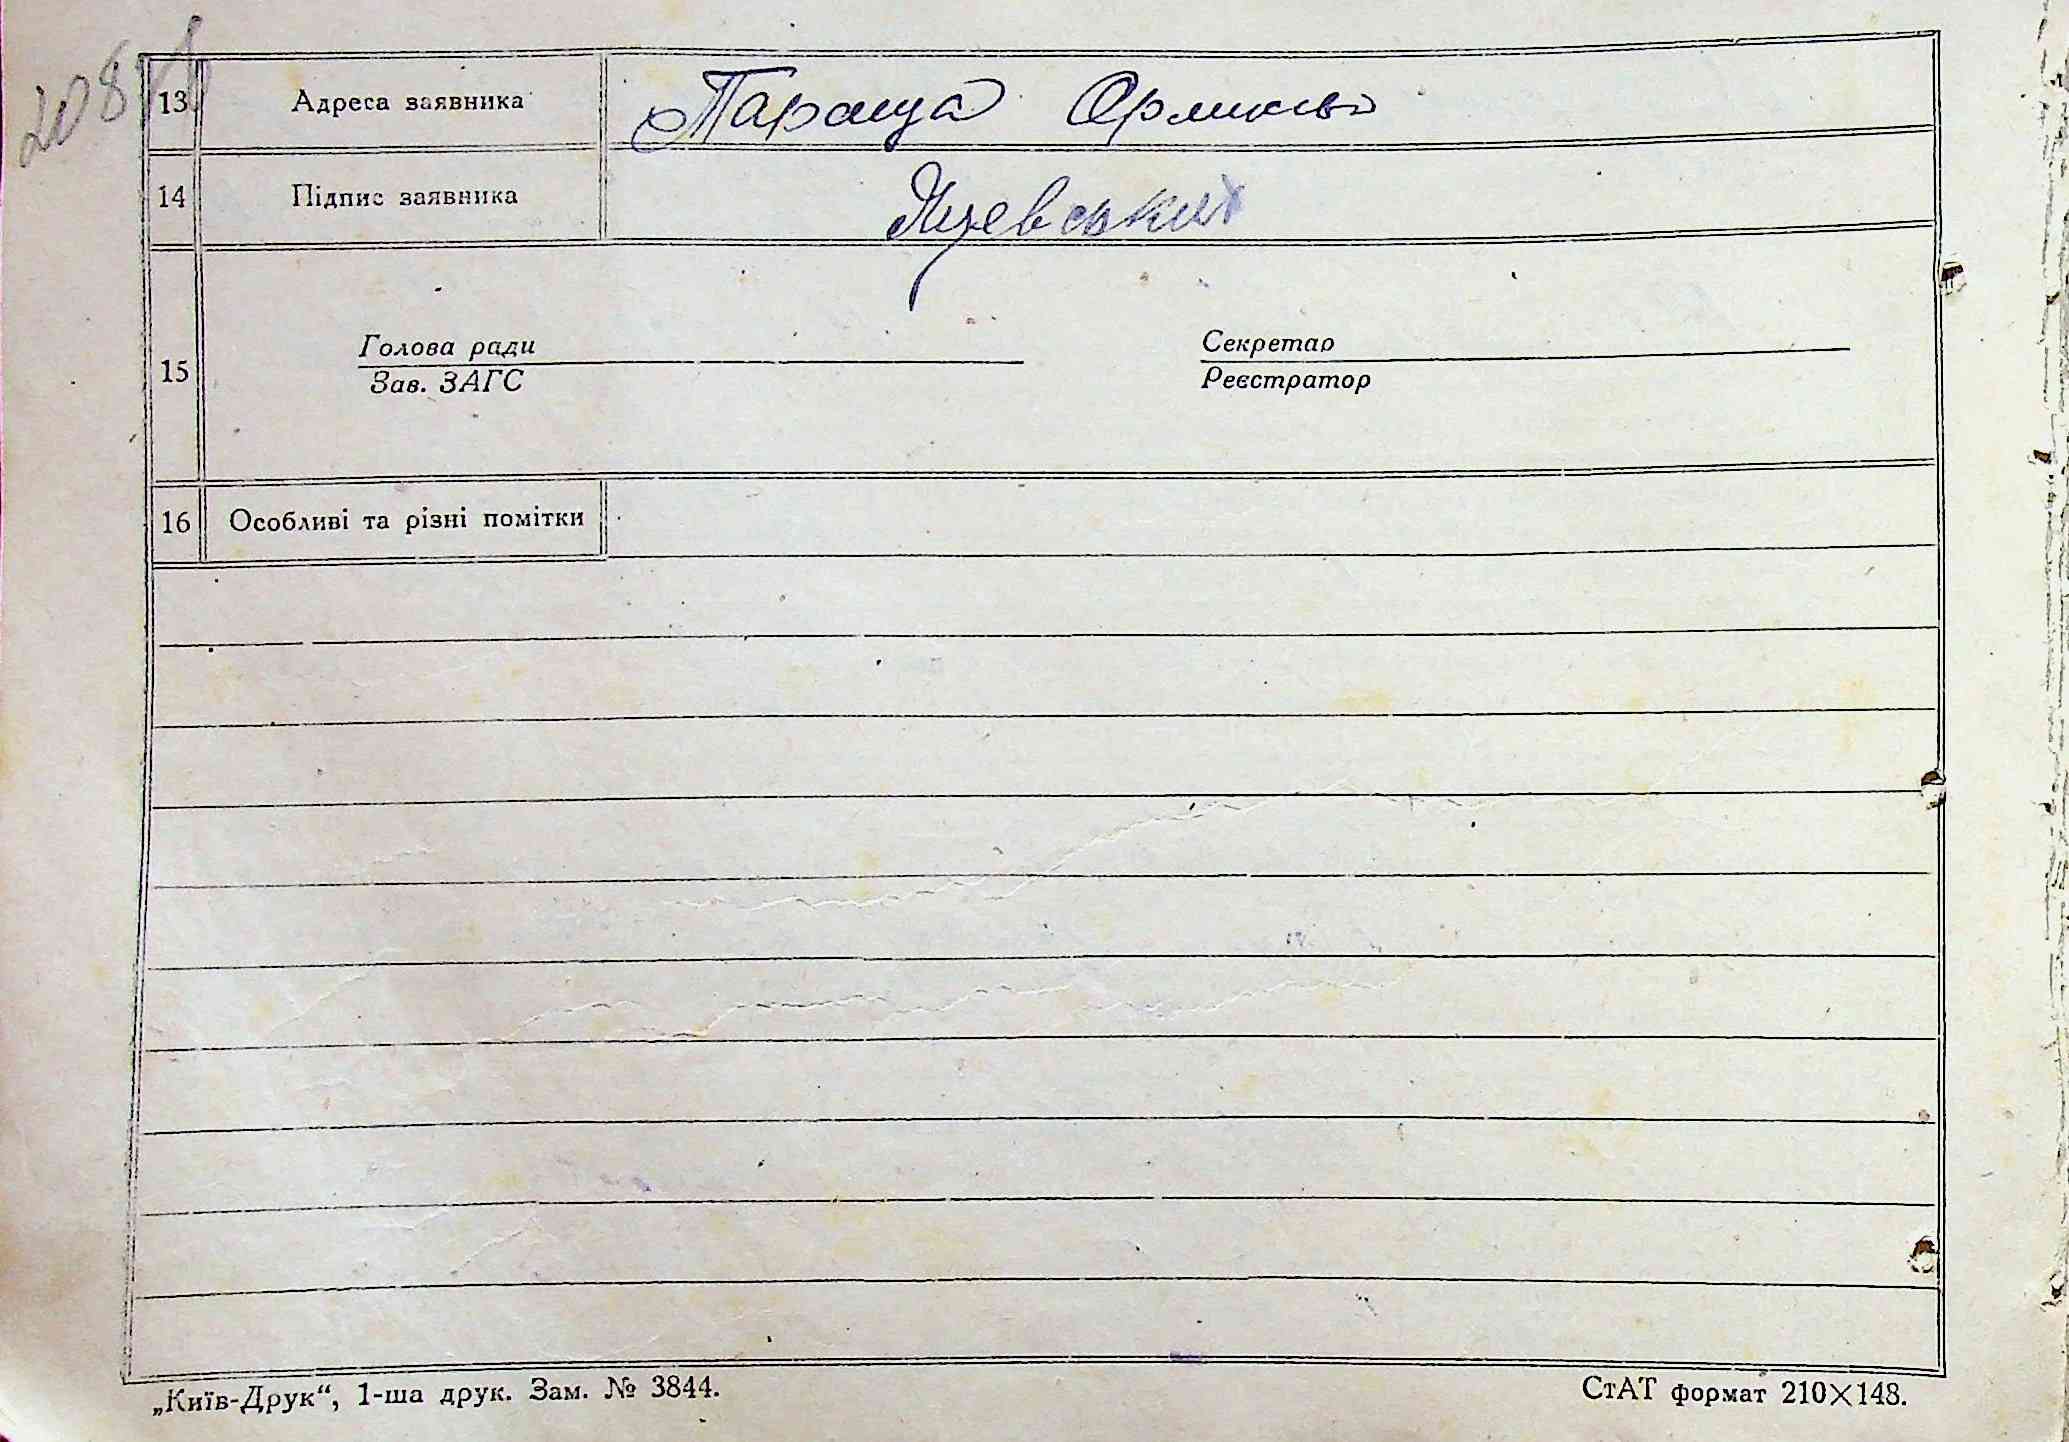 13 Адреса заявника Тараща
14 Підпис заявника
Голова ради Секретар
15
Зав. ЗАГС Реєстратор
16 Особливі та різні помітки
„Київ-Друк“, 1-ша друк. Зам. № 3844. СтАТ формат 210×148.